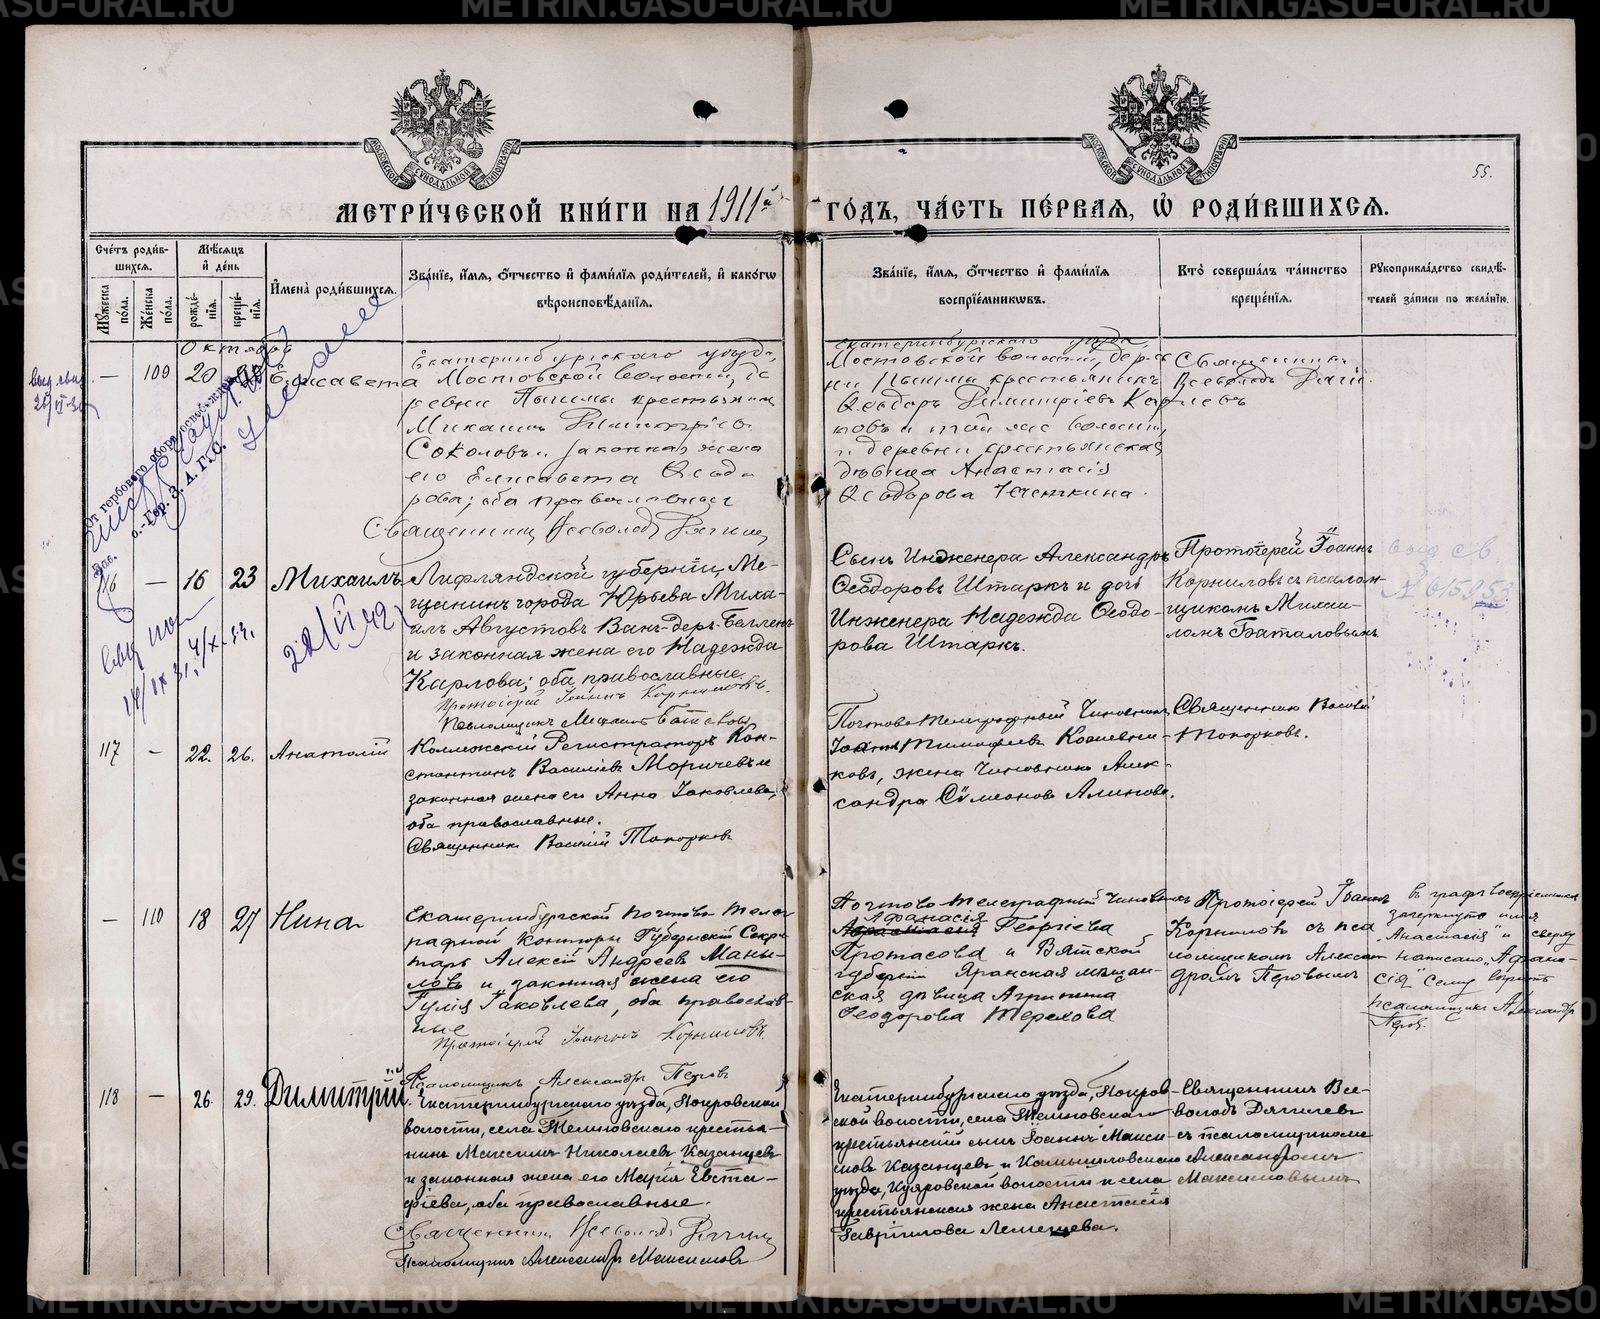 55.
МЕТРИ́ЧЕСКОЙ КНИ́ГИ НА 1911й ГО́ДЪ, ЧА́СТЬ ПЕ́РВАЯ, Ѡ҆ РОДИ́ВШИХСЯ.
Сче́тъ роди́вшихся.
Му́жеска по́ла.
Же́нска по́ла.
Мѣ́сяцъ и҆ де́нь
рожде́нїя.
креще́нїя.
И҆мена̀ роди́вшихся.
Зва́нїе, и҆́мя, ѻ҆́тчество и҆ фами́лїя роди́телей, и҆ како́гѡ вѣроисповѣ́данїя.
Зва́нїе, и҆́мя, ѻ҆́тчество и҆ фами́лїя воспрїе́мникѡвъ.
Кто̀ соверша́лъ та́инство креще́нїя.
Рꙋкоприкла́дство свидѣ́телей за́писи по жела́нїю.
Октября
— 109 20 Елисавета
Екатеринбургскаго уѣзда,
Мостовской волости, де-
ревни Пышмы крестьянин
Соколовъ и законная жена
его Елисавета Ѳеодо-
рова; оба православные
Священникъ Всеволодъ
Екатеринбургскаго уѣзда,
Мостовской волости, дерев-
ни Пышмы крестьянинъ
Ѳеодоръ Димитріевъ
и той же волости
и деревни крестьянская
дѣвица Анастасія
Ѳеодорова
Священникъ
Всеволодъ
116 — 16 23 Михаилъ
Лифляндской губерніи, Ме-
щанинъ города Юрьева Миха-
илъ Августовъ Ванъ-деръ-Белленъ
и законная жена его Надежда
Карлова; оба православные
Протоіерей Іоаннъ Корниловъ.
Псаломщикъ Михаилъ Баталовъ
Сынъ Инженера Александръ
Ѳеодоровъ Штаркъ и дочь
Инженера Надежда Ѳеодо-
рова Штаркъ.
Протоіерей Іоаннъ
Корниловъ съ псалом-
щикомъ Михаи-
ломъ Баталовымъ
117 — 22. 26. Анатолій
Коллежскій Регистраторъ Кон-
стантинъ Василіевъ Моричевъ и
законная жена его Анна Іаковлева,
оба православные.
Священникъ Василій Топорковъ
Почтово-телеграфный Чиновникъ
Іоаннъ Тимофеевъ Кожевни-
ковъ, жена Чиновника Алек-
сандра Сѷмеонова Аминова.
Священникъ Василій
Топорковъ.
— 110 18 27 Нина
Екатеринбургской Почтово-Телег-
рафной Конторы Губернскій Секре-
тарь Алексій Андреевъ Маны-
ловъ и законная жена его
Іулія Іаковлева, оба православ-
ные
Протоіерей Іоаннъ Корниловъ.
Псаломщикъ Александръ Перовъ
Почтово-телеграфный Чиновникъ
Афанасія
Анастасія Георгіева
Протасова и Вятской
губерніи Яранская мѣщан-
ская дѣвица Агрипина
Ѳеодорова Терехова
Протоіерей Іоаннъ
Корниловъ съ пса-
ломщикомъ Алексан-
дромъ Перовымъ
въ графѣ воспріемниковъ
зачеркнуто имя
„Анастасія" и сверху
написано „Афана-
сія" сему вѣрить
псаломщикъ Александръ
Перовъ
118 — 26. 29. Димитрій.
Екатеринбургскаго уѣзда, Покровской
волости, села Темновскаго крестья-
нинъ Максимъ Николаевъ Казанцевъ
и законная жена его Марія Евста-
фіева, оба православные.
Священникъ Всеволодъ
Псаломщикъ Александръ Максимовъ
Екатеринбургскаго уѣзда, Покров-
ской волости, села Темновскаго
крестьянскій сынъ Іоаннъ Макси-
мовъ Казанцевъ и Камышловскаго
уѣзда, Куяровской волости и села
крестьянская жена Анастасія
Гавріилова Лемешева.
Священникъ Все-
володъ
съ псаломщикомъ
Александромъ
Максимовымъ